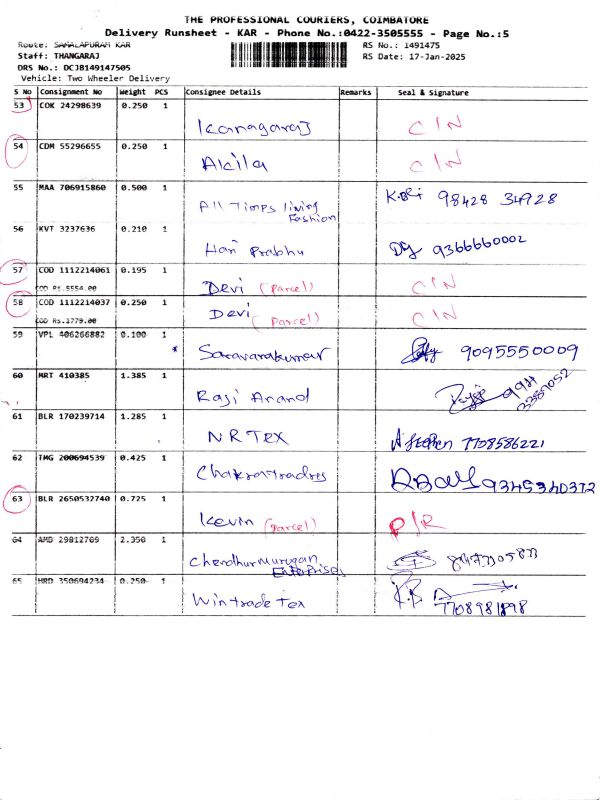 THE PROFESSIONAL COURIERS, COIMBATORE
Delivery Runsheet - KAR - Phone No.:0422-3505555 - Page No.:5
Route: SAMALAPURAM KAR
RS No.: 1491475
Staff: THANGARAJ
RS Date: 17-Jan-2025
DRS No.: DCJB149147505
Vehicle: Two Wheeler Delivery
S No Consignment No Weight PCS Consignee Details Remarks Seal & Signature
53 COK 24298639 0.250 1
Kanagaraj C/N
54 CDM 55296655 0.250 1
Akila C/N
55 MAA 706915860 0.500 1
All Times living Fashion 98428 34928
56 KVT 3237636 0.210 1
Hari Prabhu 9366660002
57 COD 1112214061 0.195 1
COD Rs.5554.00 Devi (Parcel) C/N
58 COD 1112214037 0.250 1
COD Rs.1779.00 Devi (Parcel) C/N
59 VPL 406266882 0.100 1
* Saravanakumar 9095550009
60 MRT 410385 1.385 1
Raji Anand
61 BLR 170239714 1.285 1
NRTEX 7708586221
62 TMG 200694539 0.425 1
Chakratradres 9345340372
63 BLR 2650532740 0.725 1
Kevin (Parcel) P/R
64 AMD 29812769 2.350 1
Chendhurmurugan Enterprises
65 HRD 350694234 0.250 1
Wintrade Tex 7708981898